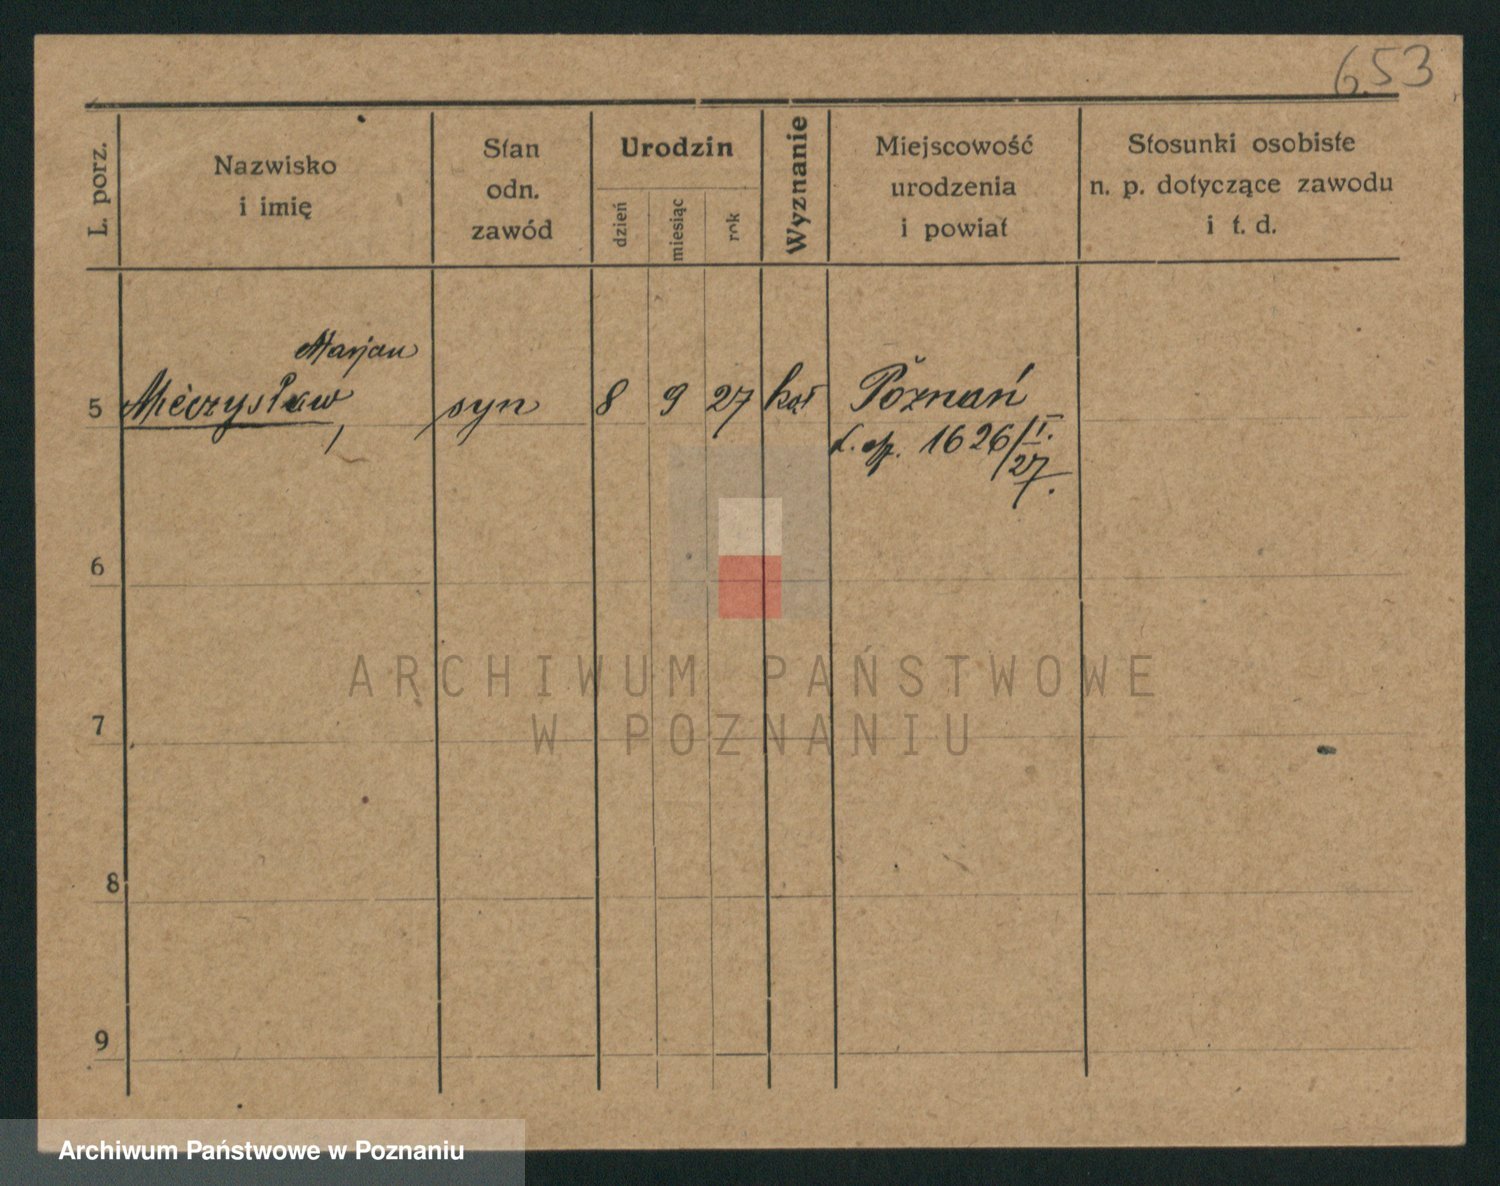 653
L. porz.
Nazwisko
i imię
Stan
odn.
zawód
Urodzin
dzień
miesiąc
rok
Wyznanie
Miejscowość
urodzenia
i powiat
Stosunki osobiste
n. p. dotyczące zawodu
i t. d.
Marjan
5 Mieczysław, syn 8 9 27 kat Poznań
1626/I.
27.
6
7
8
9
ARCHIWUM PAŃSTWOWE
W POZNANIU
Archiwum Państwowe w Poznaniu